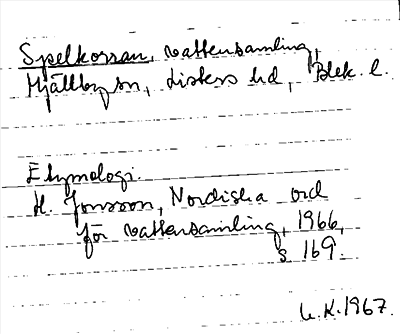 Spelkorran, vattensamling,
Mjällby sn, Listers hd, Blek. l.
Etymologi.
H. Jonsson, Nordiska ord
för vattensamling, 1966,
s 169.
U.K. 1967